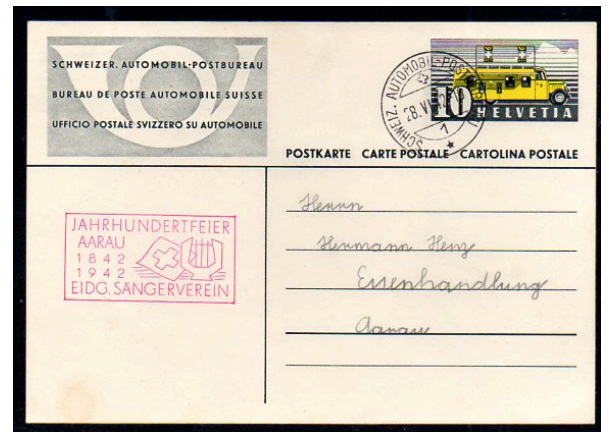 SCHWEIZER. AUTOMOBIL-POSTBUREAU
BUREAU DE POSTE AUTOMOBILE SUISSE
UFFICIO POSTALE SVIZZERO SU AUTOMOBILE
SCHWEIZ. AUTOMOBIL-POST
28. VI. 42
1
10 HELVETIA
POSTKARTE CARTE POSTALE CARTOLINA POSTALE
JAHRHUNDERTFEIER
AARAU
1842
1942
EIDG. SÄNGERVEREIN
Herrn
Hermann Henz
Eisenhandlung
Aarau